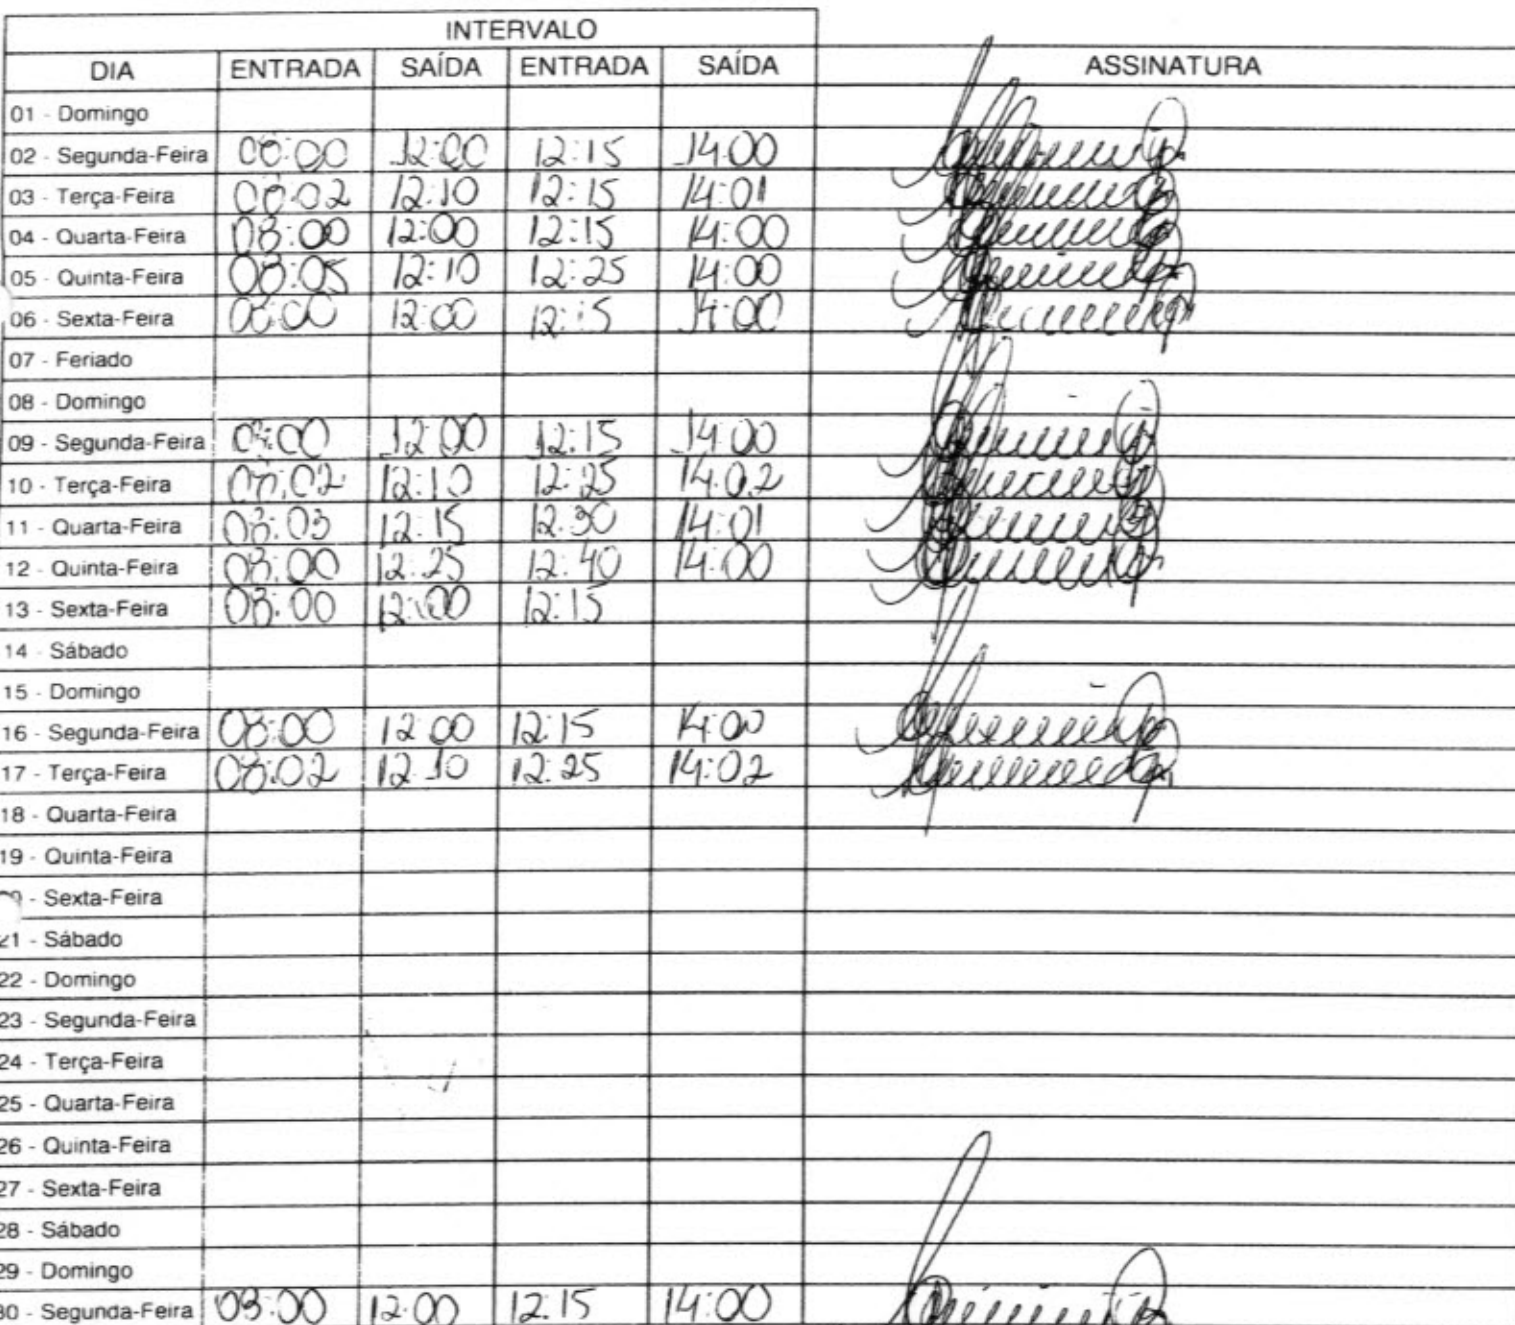 INTERVALO
DIA ENTRADA SAÍDA ENTRADA SAÍDA ASSINATURA
01 - Domingo
02 - Segunda-Feira 08:00 12:00 12:15 14:00
03 - Terça-Feira 08:02 12:10 12:15 14:01
04 - Quarta-Feira 08:00 12:00 12:15 14:00
05 - Quinta-Feira 08:05 12:10 12:25 14:00
06 - Sexta-Feira 08:00 12:00 12:15 14:00
07 - Feriado
08 - Domingo
09 - Segunda-Feira 08:00 12:00 12:15 14:00
10 - Terça-Feira 08:02 12:10 12:25 14:02
11 - Quarta-Feira 08:03 12:15 12:30 14:01
12 - Quinta-Feira 08:00 12:25 12:40 14:00
13 - Sexta-Feira 08:00 12:00 12:15
14 - Sábado
15 - Domingo
16 - Segunda-Feira 08:00 12:00 12:15 14:00
17 - Terça-Feira 08:02 12:10 12:25 14:02
18 - Quarta-Feira
19 - Quinta-Feira
- Sexta-Feira
21 - Sábado
22 - Domingo
23 - Segunda-Feira
24 - Terça-Feira
25 - Quarta-Feira
26 - Quinta-Feira
27 - Sexta-Feira
28 - Sábado
29 - Domingo
30 - Segunda-Feira 08:00 12:00 12:15 14:00